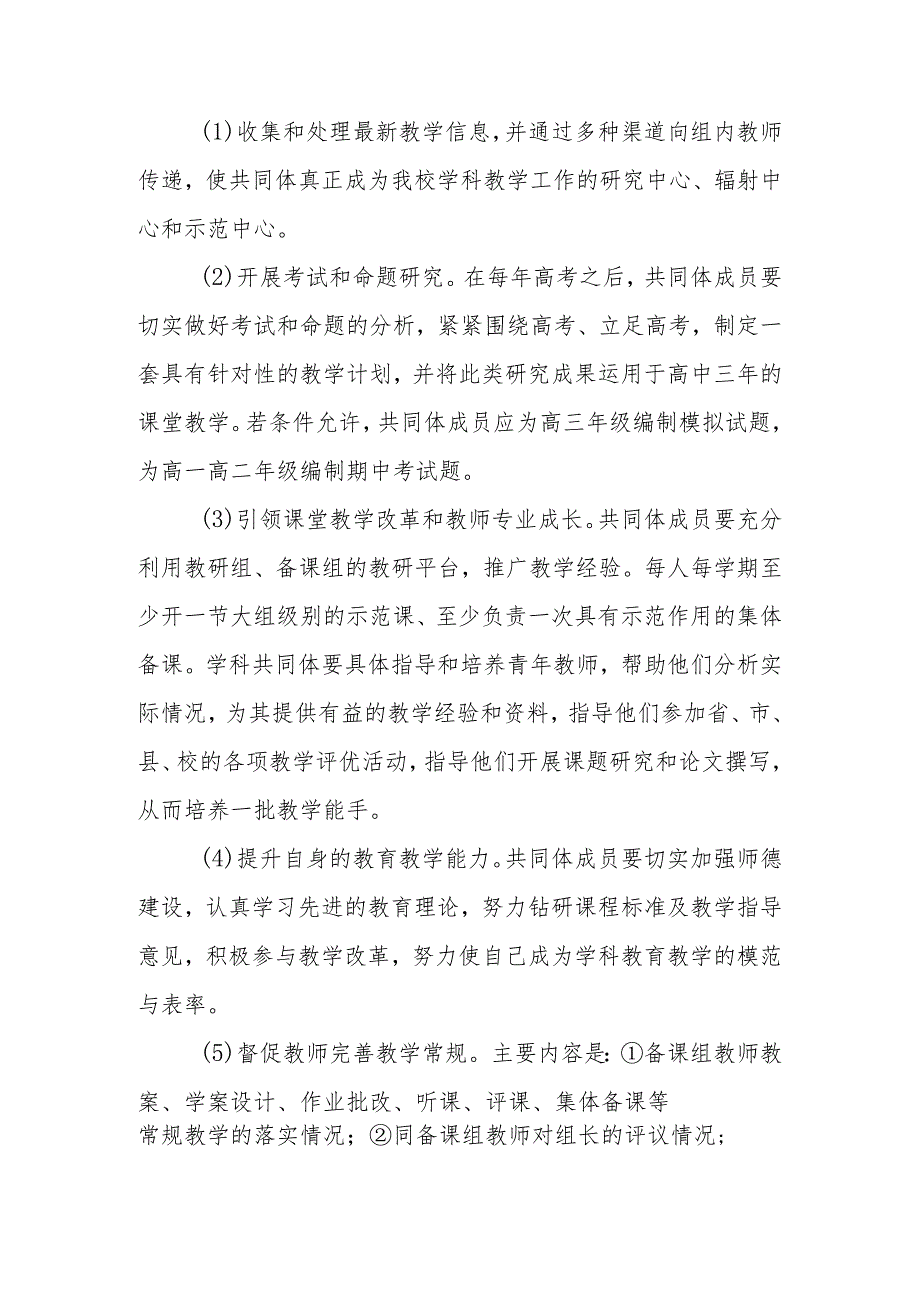 (1)收集和处理最新教学信息,并通过多种渠道向组内教师
传递，使共同体真正成为我校学科教学工作的研究中心、辐射中
心和示范中心。
(2)开展考试和命题研究。在每年高考之后，共同体成员要
切实做好考试和命题的分析，紧紧围绕高考、立足高考，制定一
套具有针对性的教学计划,并将此类研究成果运用于高中三年的
课堂教学。若条件允许,共同体成员应为高三年级编制模拟试题,
为高一高二年级编制期中考试题。
(3)引领课堂教学改革和教师专业成长。共同体成员要充分
利用教研组、备课组的教研平台，推广教学经验。每人每学期至
少开一节大组级别的示范课、至少负责一次具有示范作用的集体
备课。学科共同体要具体指导和培养青年教师，帮助他们分析实
际情况，为其提供有益的教学经验和资料，指导他们参加省、市、
县、校的各项教学评优活动,指导他们开展课题研究和论文撰写,
从而培养一批教学能手。
(4)提升自身的教育教学能力。共同体成员要切实加强师德
建设，认真学习先进的教育理论，努力钻研课程标准及教学指导
意见，积极参与教学改革，努力使自己成为学科教育教学的模范
与表率。
(5)督促教师完善教学常规。主要内容是:①备课组教师教
案、学案设计、作业批改、听课、评课、集体备课等
常规教学的落实情况；②同备课组教师对组长的评议情况;